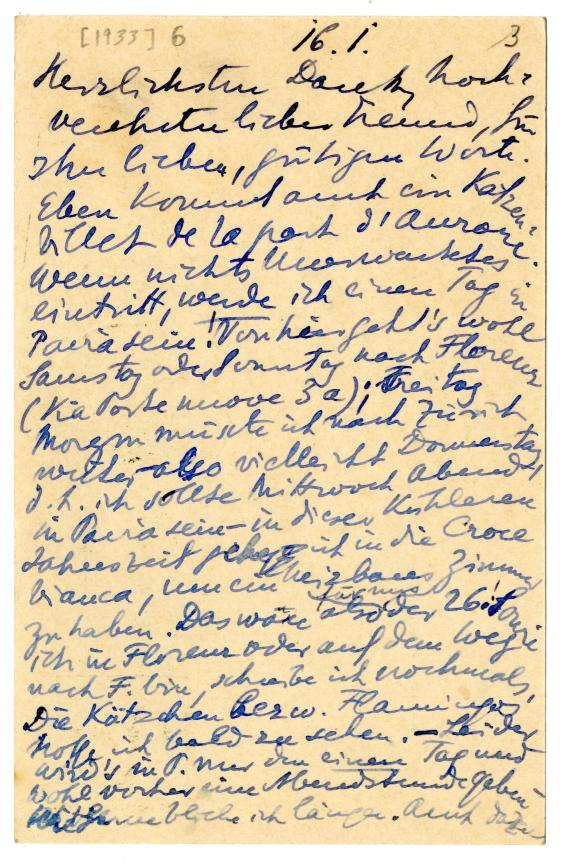 [1933] 6 16.1. 3
Herzlichsten Dank, hoch-
verehrter lieber Freund, für
Ihre lieben, gütigen Worte.
Eben kommt auch ein Katzen-
billet de la part d'Aurore.
Wenn nichts Unerwartetes
eintritt, werde ich einen Tag in
Pavia sein! Vorher geht's wohl
Samstag oder Sonntag nach Florenz
(Via Porte nuove 3a); Freitag
Morgen müsste ich nach Zürich
weiter also vielleicht Donnerstag,
d. h. ich sollte Mittwoch Abend
in Pavia sein – in dieser kühleren
Jahreszeit ich in die Croce
bianca, um ein heizbares Zimmer
zu haben. Das wäre also der 26! Sowie
ich in Florenz oder auf dem Wege
nach F. bin, schreibe ich nochmals,
Die Kätzchen bezw. Flamingos
hoffe ich bald zu sehen. – Leider
wird's in P. nur den einen Tag und
wohl vorher eine Abendstunde geben
bliebe ich länger. Auch dazu